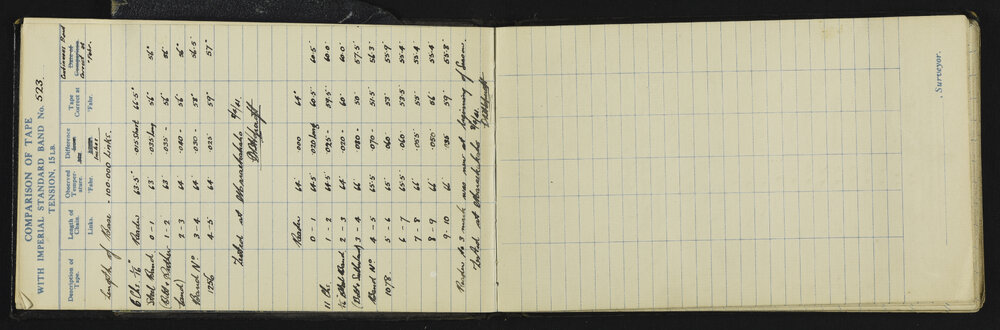 COMPARISON OF TAPE
WITH IMPERIAL STANDARD BAND No. 523
TENSION, 15 LB.
Description of Tape. Length of Chain Observed Temperature. Difference Tape Correct at Correct at
Links. °Fahr. Inches °Fahr. °Fahr.
Length of Base - 100.000 Links.
6 Chs. 1/8" Reader 63.5° .015 Short 66.5°
Steel Band 0 - 1 63 .035 long 56° 56°
1 - 2 63 .035 - 56 56
Band) 2 - 3 64 .040 - 56° 56°
Band No 3 - 4 64 .030 - 58° 56.5
1256 4 - 5 64 .025 59° 57°
Tested at 9/4/61.
Reader 64 .000 64°
11 Chs. 0 - 1 64.5 .020 long 60.5 60.5
1 - 2 64.5 59.5 60.0
Band 2 - 3 64 .020 - 60 60.0
3 - 4 66 50 57.5
Band No 4 - 5 65.5 .070 - 51.5 56.3
1078. 5 - 6 65 .060 53 55.9
6 - 7 65.5 .060 53.5 55.4
7 - 8 66 .055 55 55.4
8 - 9 66 .050 56 55.4
9 - 10 66 59 55.8
Reader No 3 was new at beginning of Season.
Tested at 9/4/61.
Surveyor.